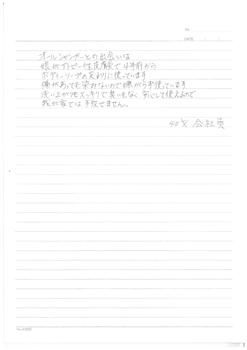 No.
DATE
オールシャンプーとの出会いは
娘がアトピー性皮膚炎で4年前から
ボディーソープの変わりに使っています
傷があっても染みないので嫌がらず使っています
洗い上がりもスッキリで臭いもなく 安心して使えるので
我が家では手放せません。
40才 会社員